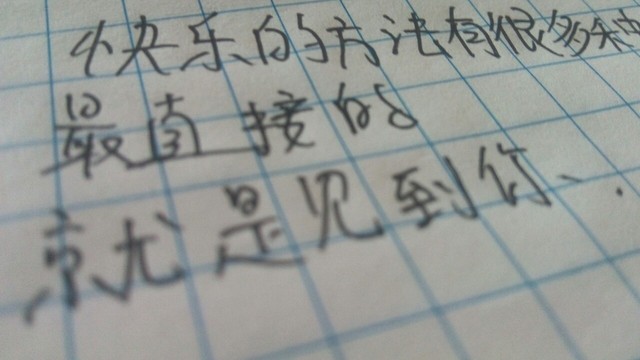 快乐的方法有很多种
最直接的
就是见到你、.